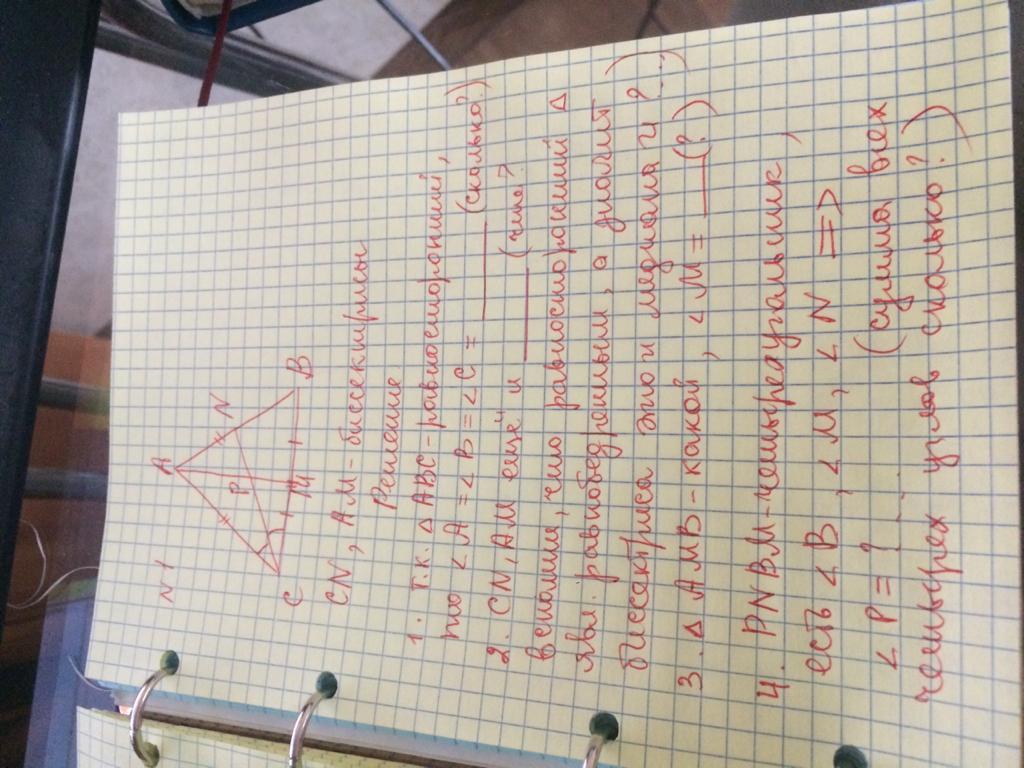 N 1
A
N
P
C
M
B
CN, AM - биссектрисы
Решение
1. Т.к. △ ABC - равносторонний,
то <A = <B = <C = ____ (сколько?)
2. CN, AM ещё и ____ (что?
вспомни, что равносторонний △
явл. равнобедренным, а значит
биссектриса это и медиана и ?...)
3. △ AMB - какой, <M = ___ (?)
4. PNBM - четырехугольник,
есть <B, <M, <N =>
<P = ? ... (сумма всех
четырех углов сколько?)